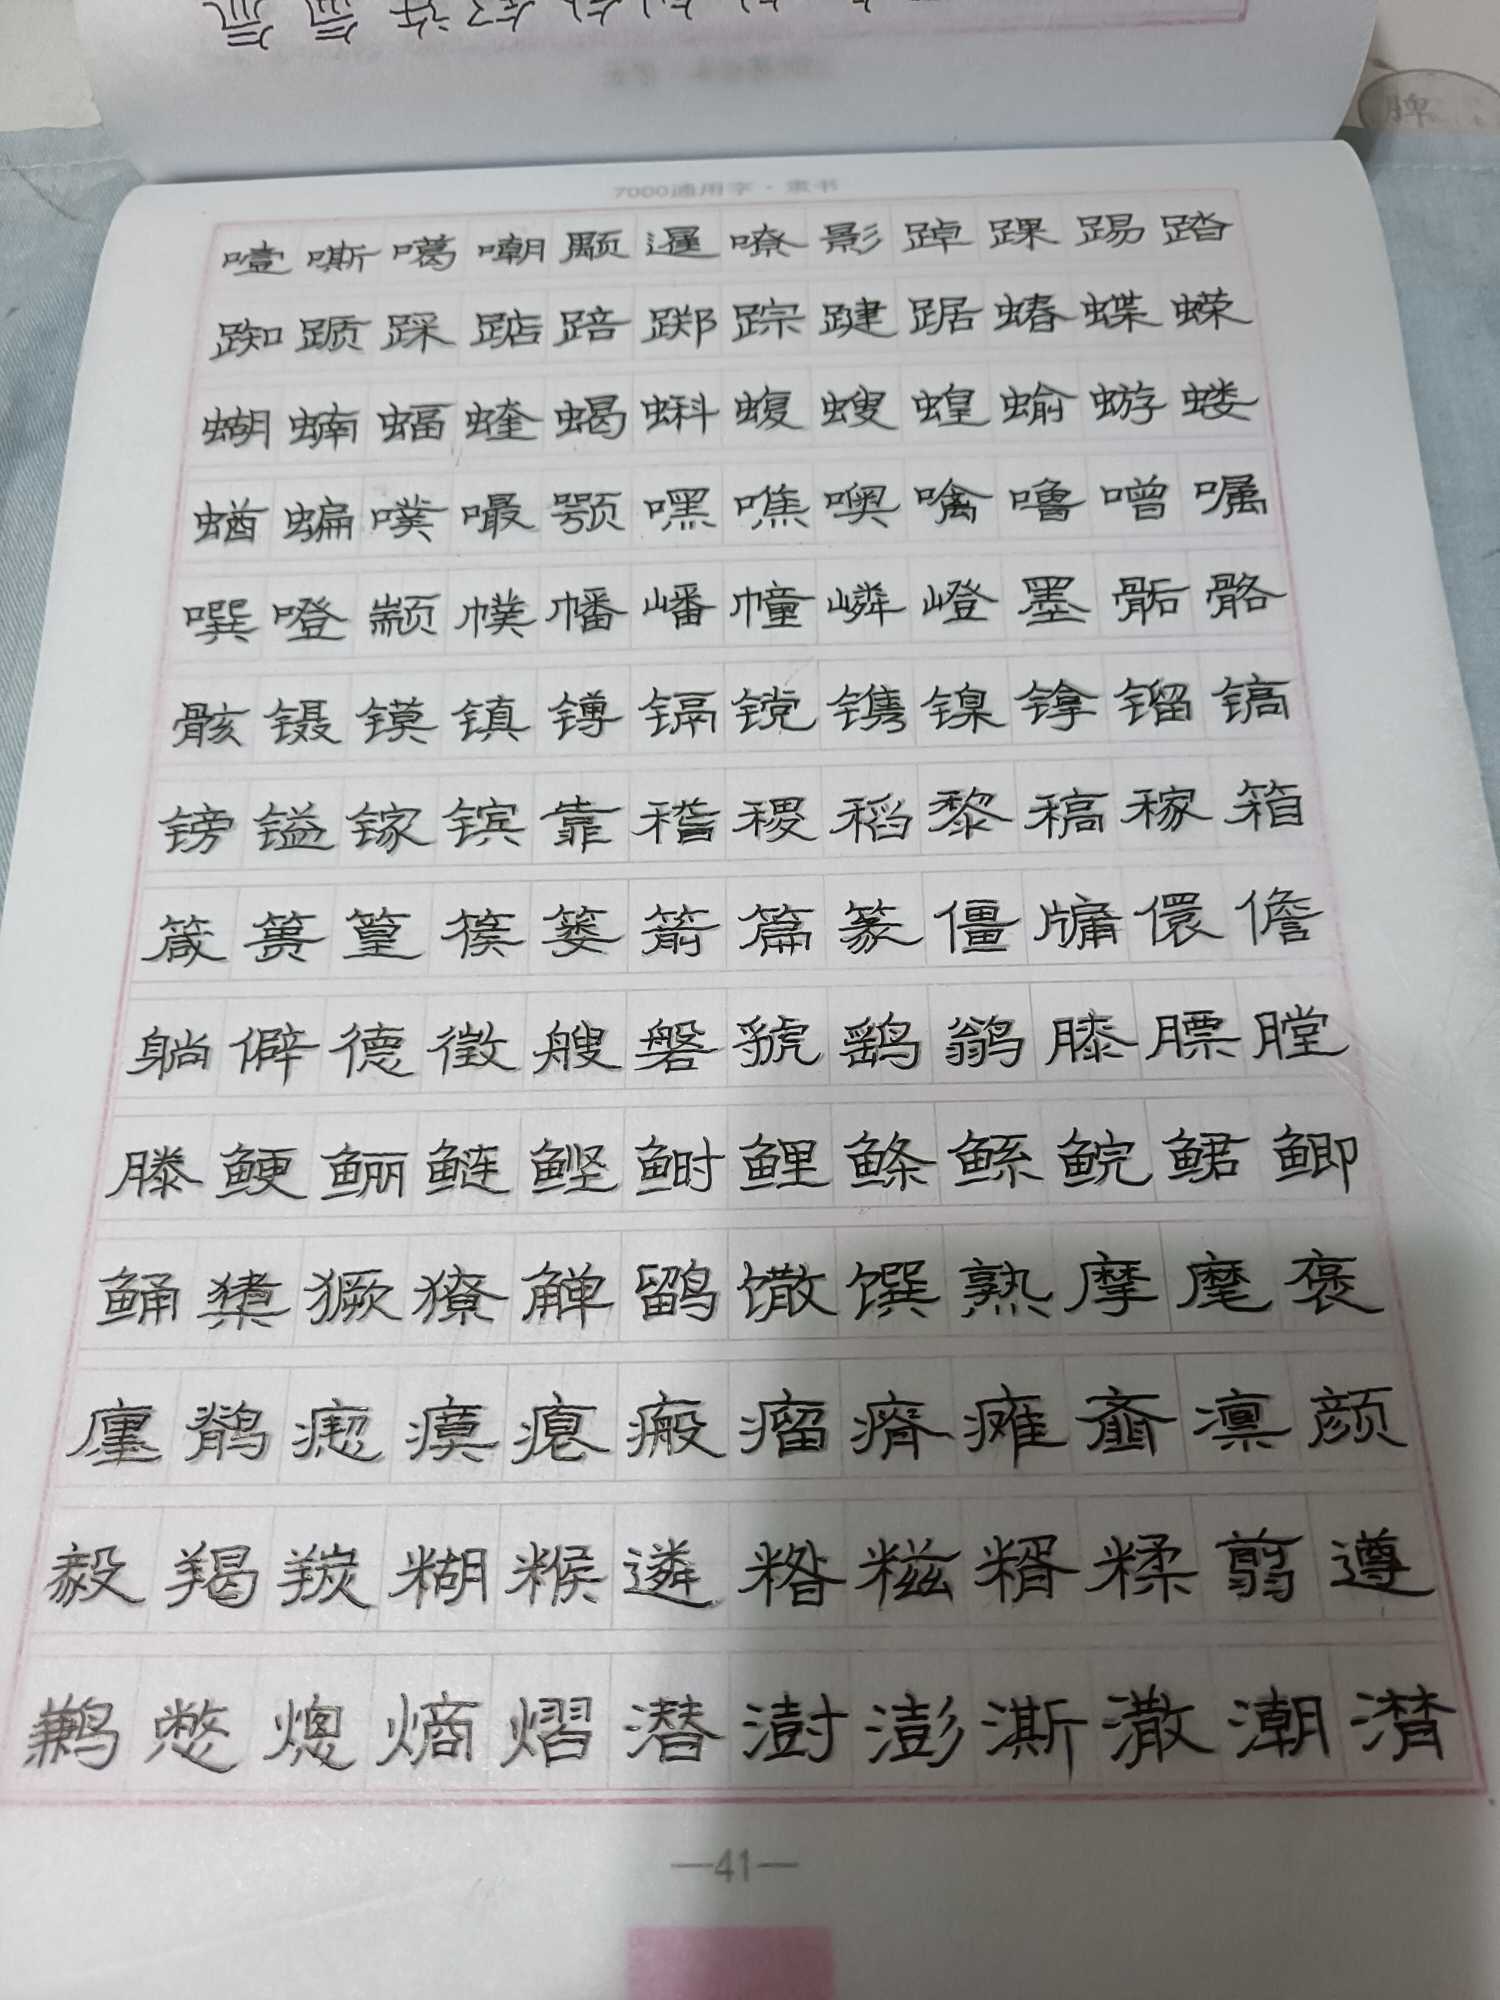 7000通用字·隶书
噎嘶噶嘲颙暹嘹影踔踝踢踏
踟踬踩踮踣踯踪踺踞蝽蝶蝾
蝴蝻蝠蝰蝎蝌蝮螋蝗蝓蝣蝼
蝤蝙噗嘬颚嘿噍噢噙噜噌嘱
噀噔颛幞幡嶓幢嶙嶝墨骺骼
骸镊镆镇镈镉镋镌镍镎镏镐
镑镒镓镔靠稽稷稻黎稿稼箱
箴篑篁篌篓箭篇篆僵牖儇儋
躺僻德徵艘磐虢鹞鹟膝膘膛
滕鲠鲡鲢鲣鲥鲤鲦鲧鲩鲪鲫
鲬橥獗獠觯鹠馓馔熟摩麾褒
廛鹡瘛瘼瘪瘢瘤瘠瘫齑凛颜
毅羯羰糊糇遴糌糍糈糅翦遵
鹣憋熜熵熠潜澍澎澌潵潮潸
—41—